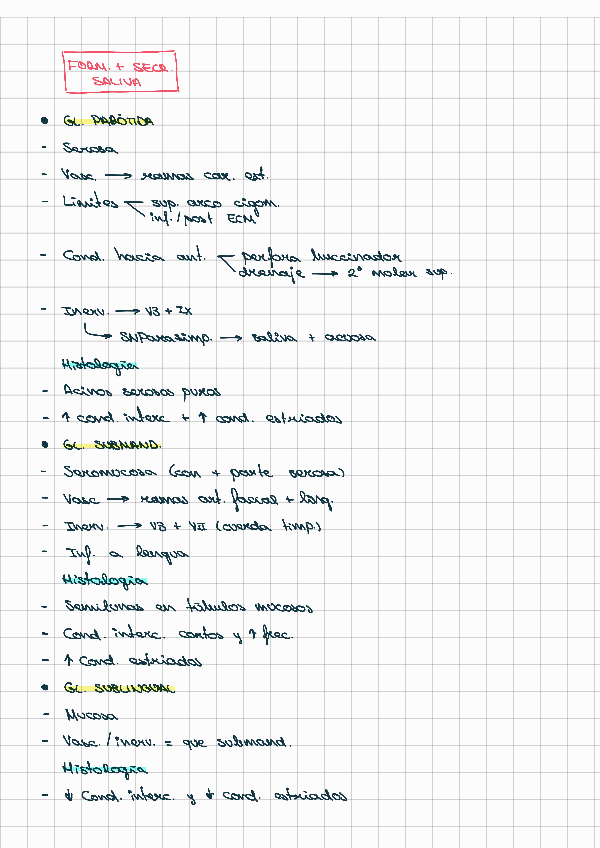 FORM. + SECR.
SALIVA
• GL. PARÓTIDA
- Serosa
- Vasc. → ramas car. ext.
- Límites sup. arco cigom.
inf./post ECM
- Cond. hacia ant. perfora buccinador
drenaje → 2º molar sup.
- Inerv. → V3 + IX
SNParasimp. → saliva + acuosa
Histología
- Acinos serosos puros
- ↑ cond. interc + ↑ cond. estriados
• GL. SUBMAND.
- Seromucosa (con + parte serosa)
- Vasc → ramas art. facial + ling.
- Inerv. → V3 + VII (cuerda timp.)
- Inf. a lengua
Histología
- Semilunas en túbulos mucosos
- Cond. interc. cortos y ↑ frec.
- ↑ Cond. estriados
• GL. SUBLINGUAL
- Mucosa
- Vasc./inerv. = que submand.
Histología
- ↓ Cond. interc. y ↓ cond. estriados